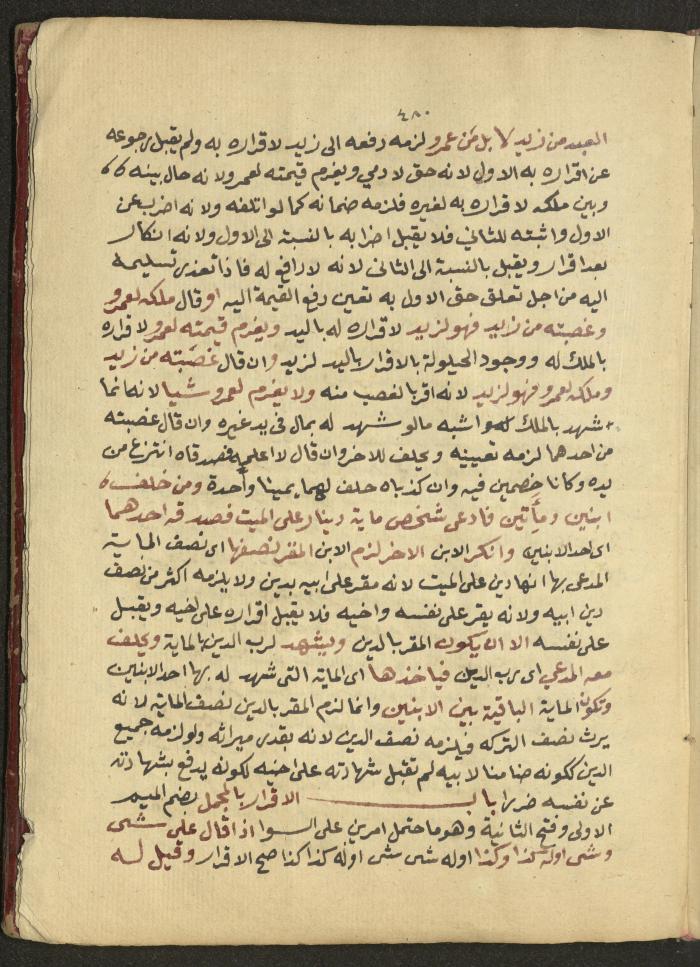 ٤٨٠
العبد من زيد لا بل من عمرو لزمه دفعه الى زيد لاقراره به ولم يقبل رجوعه
عن اقراره به الاول لانه حق لادمي ويغرم قيمته لعمرو لانه حال بينه
وبين ملكه لاقراره به لغيره فلزمه ضمانه كما لو اتلفه ولانه اضرب عن
الاول واثبته للثاني فلا يقبل اضرابه بالنسبة الى الاول ولانه انكار
بعد اقرار ويقبل بالنسبة الى الثانى لانه لا دافع له فاذا تعذر تسليمه
اليه من اجل تعلق حق الاول به تعين دفع القيمة اليه او قال ملكه لعمرو
وغصبته من زيد فهو لزيد لاقراره له باليد ويغرم قيمته لعمرو لاقراره
بالملك له ووجود الحيلولة بالاقرار باليد لزيد وان قال غصبته من زيد
وملكه لعمرو فهو لزيد لانه اقر بالغصب منه ولا يغرم لعمرو شيا لانه انما
شهد بالملك له واشبه مالو شهد له بمال في يد غيره وان قال غصبته
من احدهما لزمه تعيينه ويحلف للاخر وان قال لا اعلمه فصدقاه انتزع من
يده وكانا خصمين فيه وان كذباه حلف لهما يمينا واحدة ومن خلف
ابنين ومأتين فادعى شخص ماية دينار على الميت فصدقه احدهما
اى احد الابنين وانكر الابن الاخر لزم الابن المقر نصفها اى نصف الماية
المدعى بها انها دين على الميت لانه مقر على ابيه بدين ولا يلزمه اكثر من نصف
دين ابيه ولانه يقر على نفسه واخيه فلا يقبل اقراره على اخيه ويقبل
على نفسه الا ان يكون المقر بالدين ويشهد لرب الدين بالماية ويحلف
معه المدعي اى رب الدين فياخذها اى الماية التى شهد له بها احد الابنين
وتكون الماية الباقية بين الابنين وانما لزم المقر بالدين نصف الماية لانه
يرث نصف التركه فيلزمه نصف الدين لانه بقدر ميراثه ولو لزمه جميع
الدين ككونه ضامنا لابيه لم تقبل شهادته على اخيه لكونه يدفع بشهادته
عن نفسه ضررا باب الاقرار بالمجمل بضم الميم
الاولى وفتح الثانية وهو ما احتمل امرين على السوا اذا قال على شى
وشى اوله كذا وكذا اوله شى شى اوله كذا كذا صح الاقرار وقيل له